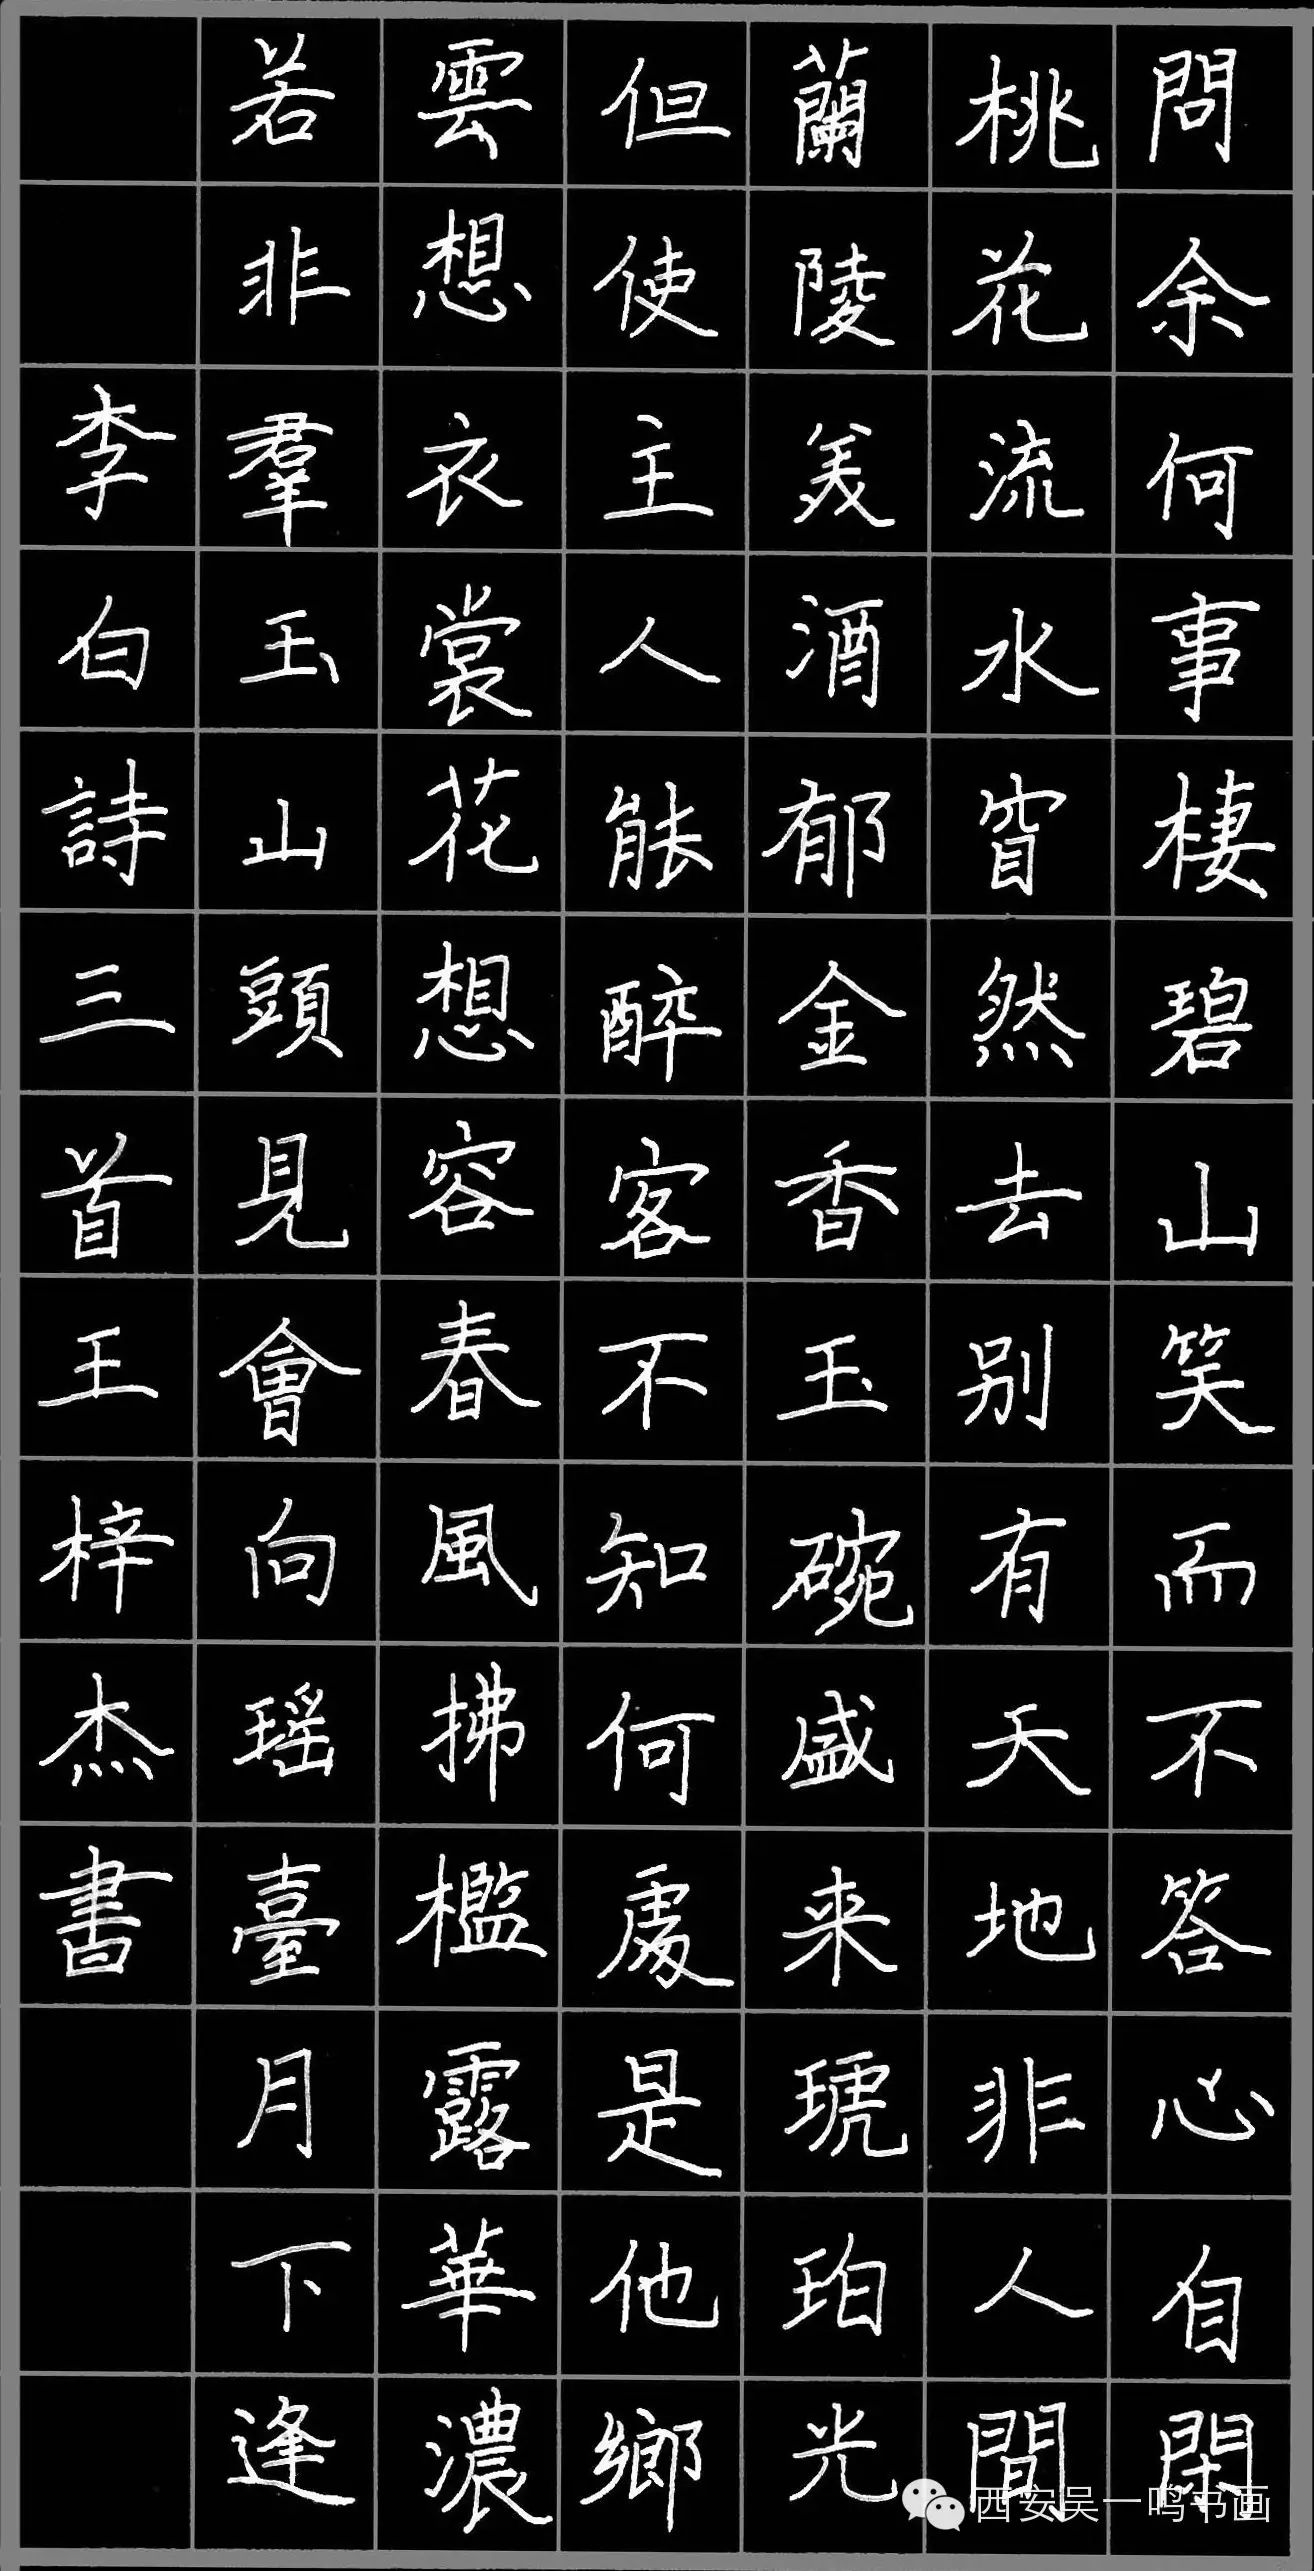 問余何事棲碧山笑而不答心自閑
桃花流水窅然去别有天地非人間
蘭陵美酒郁金香玉碗盛来琥珀光
但使主人能醉客不知何處是他鄉
雲想衣裳花想容春風拂檻露華濃
若非羣玉山頭見會向瑶臺月下逢
李白詩三首王梓杰書
西安吴一鸣书画